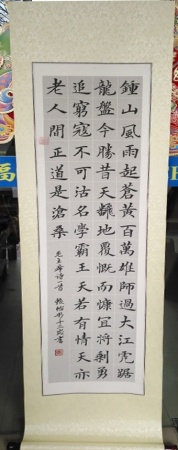 鍾山風雨起蒼黃百萬雄師過大江虎踞
龍盤今勝昔天翻地覆慨而慷宜將剩勇
追窮寇不可沽名學霸王天若有情天亦
老人間正道是滄桑
毛主席詩一首
十三歲書
福